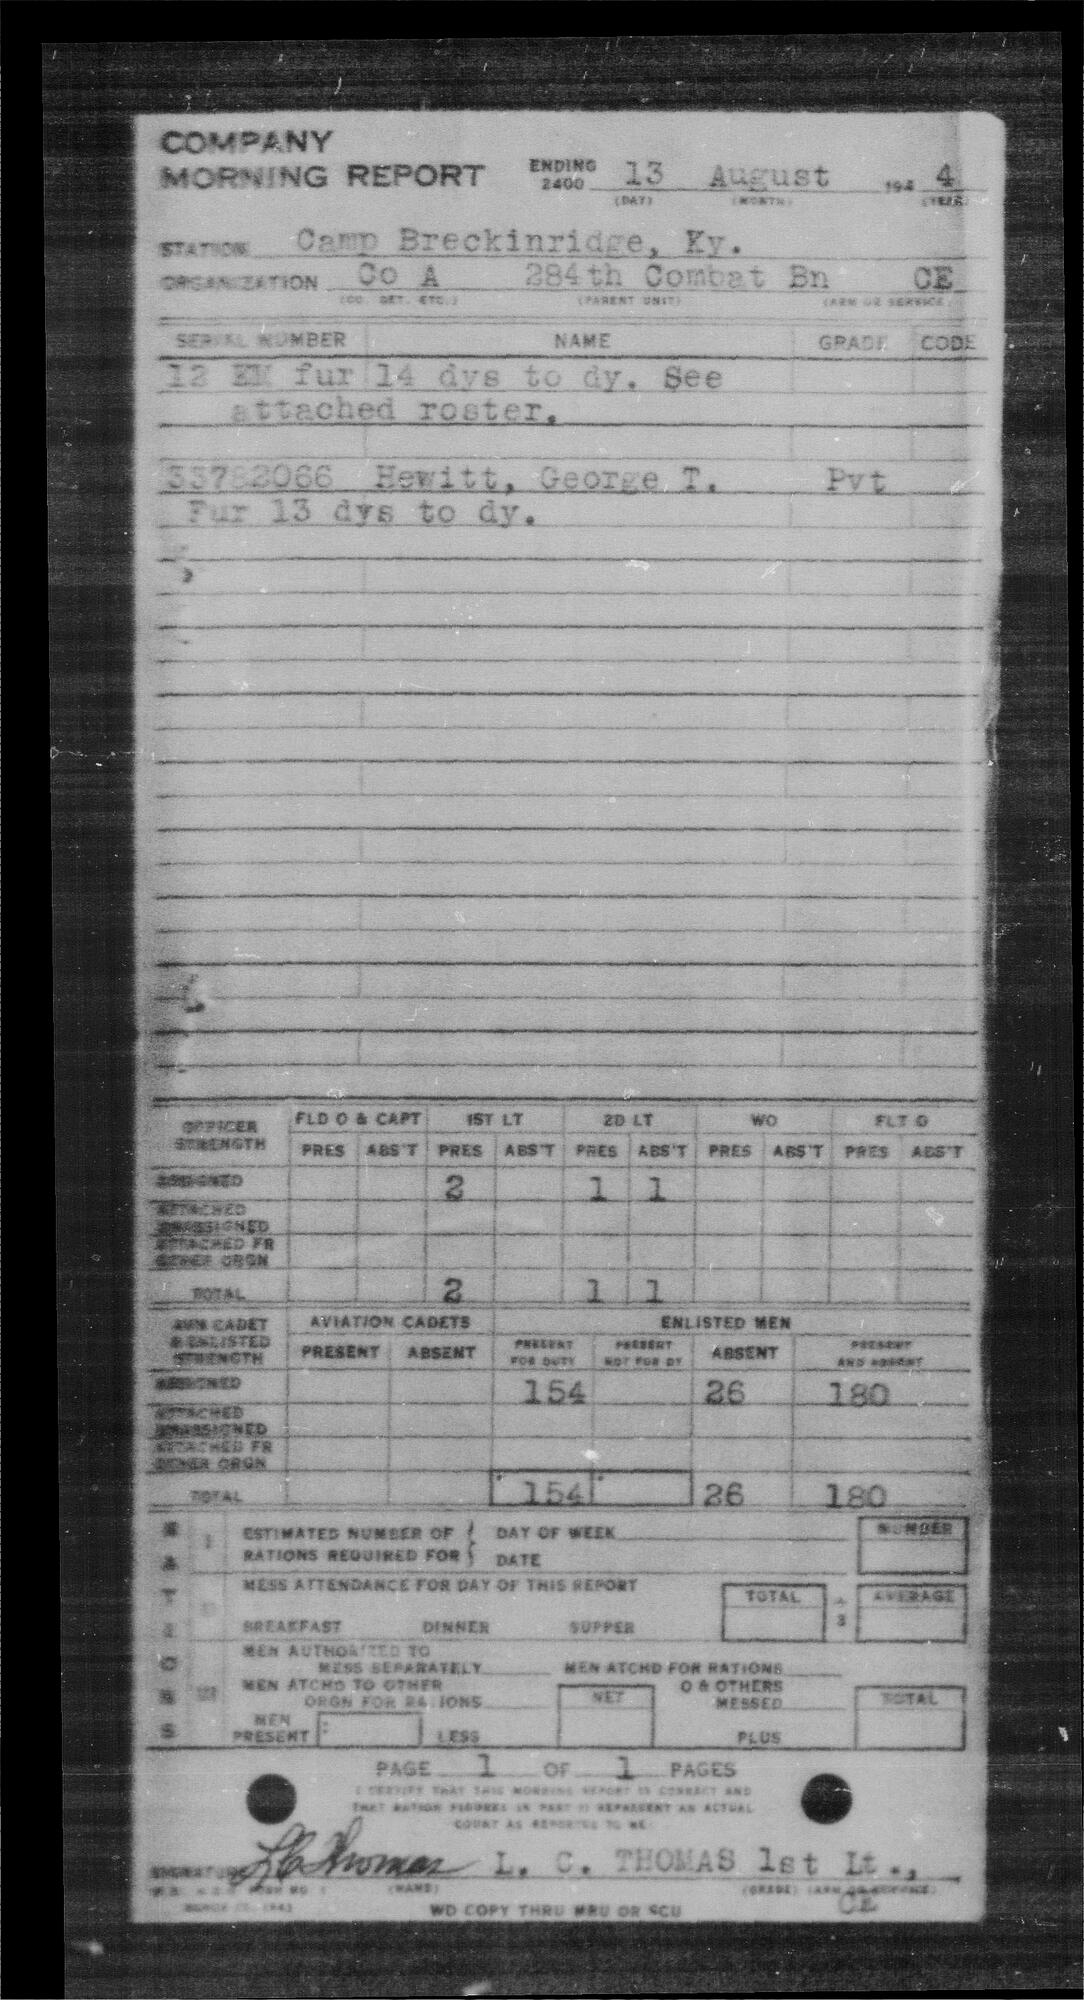 COMPANY
MORNING REPORT ENDING 2400 13 August 1944
(DAY) (MONTH) (YEAR)
STATION Camp Breckinridge, Ky.
ORGANIZATION Co A 284th Combat Bn CE
(CO. DET. ETC.) (PARENT UNIT) (ARM OR SERVICE)
SERIAL NUMBER NAME GRADE CODE
12 EM fur 14 dys to dy. See
attached roster.
33782066 Hewitt, George T. Pvt
Fur 13 dys to dy.
OFFICER STRENGTH FLD O & CAPT 1ST LT 2D LT WO FLT O
PRES ABS'T PRES ABS'T PRES ABS'T PRES ABS'T PRES ABS'T
ASSIGNED 2 1 1
ATTACHED UNASSIGNED
ATTACHED FR OTHER ORGN
TOTAL 2 1 1
AVN CADET & ENLISTED STRENGTH AVIATION CADETS ENLISTED MEN
PRESENT ABSENT PRESENT FOR DUTY PRESENT NOT FOR DY ABSENT PRESENT AND ABSENT
ASSIGNED 154 26 180
ATTACHED UNASSIGNED
ATTACHED FR OTHER ORGN
TOTAL 154 26 180
RATIONS
ESTIMATED NUMBER OF DAY OF WEEK NUMBER
RATIONS REQUIRED FOR DATE
MESS ATTENDANCE FOR DAY OF THIS REPORT TOTAL ÷ 3 AVERAGE
BREAKFAST DINNER SUPPER
MEN AUTHORIZED TO
MESS SEPARATELY MEN ATCHD FOR RATIONS
MEN ATCHD TO OTHER O & OTHERS
ORGN FOR RATIONS NET MESSED TOTAL
MEN PRESENT LESS PLUS
PAGE 1 OF 1 PAGES
I CERTIFY THAT THIS MORNING REPORT IS CORRECT AND
THAT RATION FIGURES IN PART II REPRESENT AN ACTUAL
COUNT AS REPORTED TO ME
SIGNATURE L C Thomas L. C. THOMAS 1st Lt.,
(NAME) (GRADE) (ARM OR SERVICE)
CE
WD COPY THRU MRU OR SCU